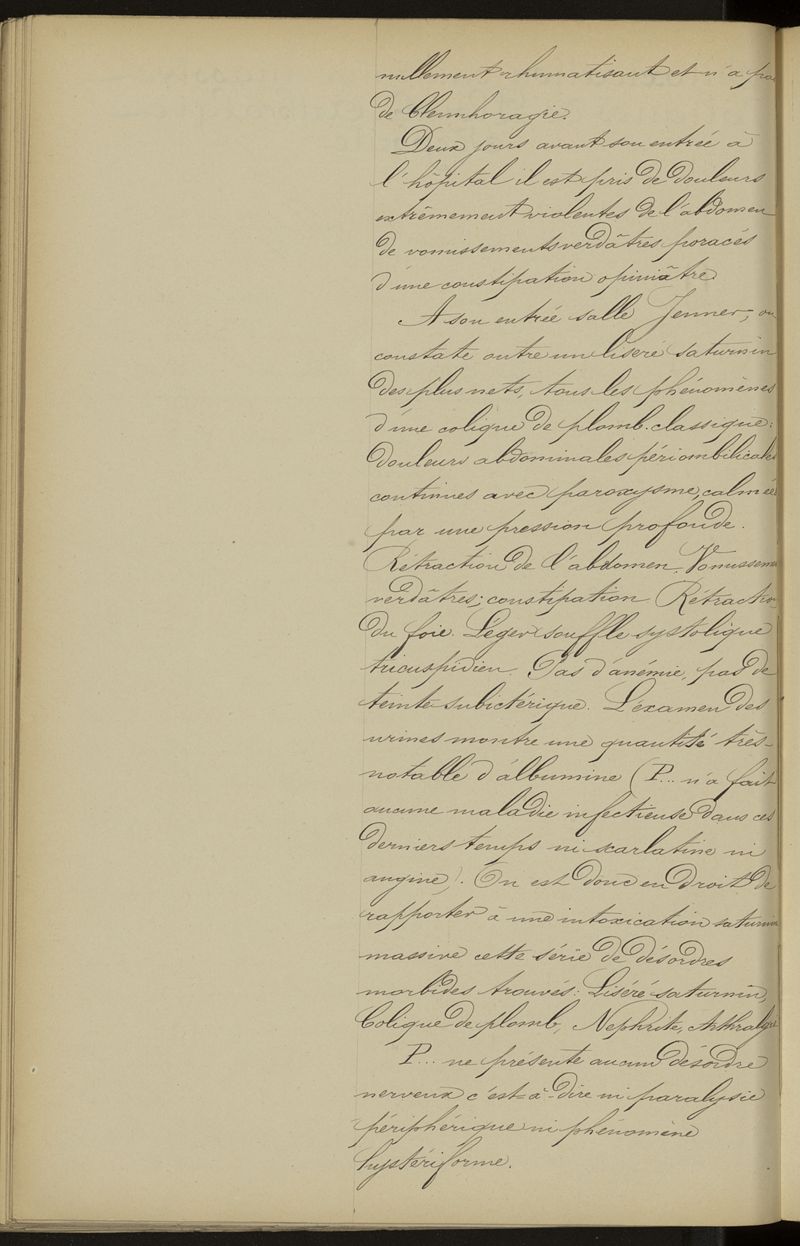 nullement rhumatisant et n'a pas
de blennhoragie.
Deux jours avant son entrée à
l'hôpital il est pris de douleurs
extrêmement violentes de l'abdomen
de vomissements verdâtres poracés
d'une constipation opiniâtre
A son entrée salle Jenner, on
constate outre un liseré saturnin
des plus nets, tous les phénomènes
d'une colique de plomb classique:
douleurs abdominales périombilicales
continues avec paroxysme, calmées
par une pression profonde.
Rétraction de l'abdomen. Vomissements
verdâtres; constipation. Rétraction
du foie. Léger souffle systolique
tricuspidien. Pas d'anémie, pas de
teinte subictérique. L'examen des
urines montre une quantité très-
notable d'albumine (P... n'a fait
aucune maladie infectieuse dans ces
derniers temps ni scarlatine ni
angine). On est donc en droit de
rapporter à une intoxication saturnine
massive cette série de désordres
morbides trouvés: Liséré saturnin,
Colique de plomb, Néphrite, Arthralgie
P... ne présente aucun désordre
nerveux c'est-à-dire ni paralysie
périphérique ni phénomène
hystériforme.